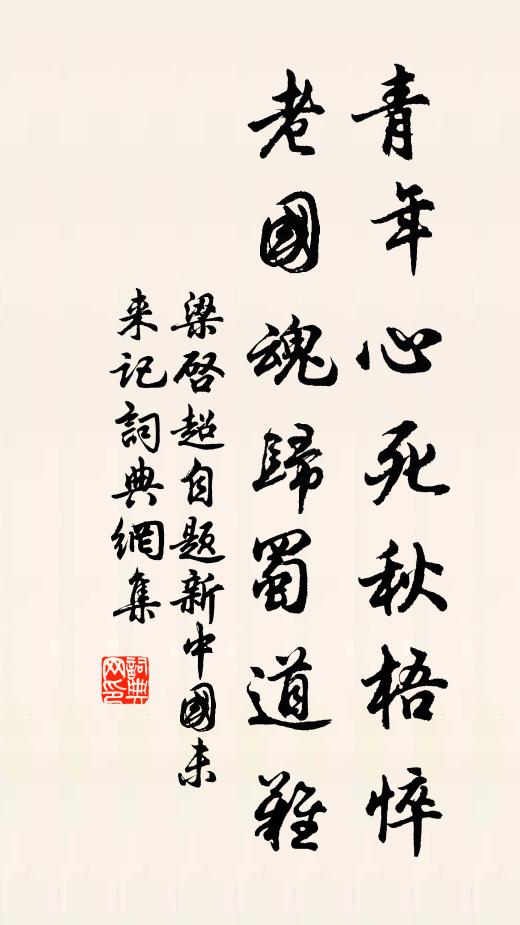 青年心死秋梧悴
老國魂歸蜀道難
梁啓超自题新中國未
来记詞典網集
詞典网印